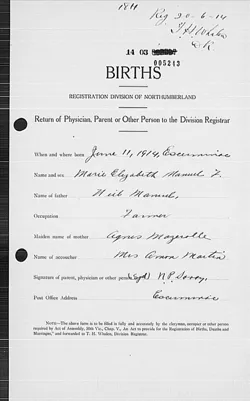 1811
Reg 20-6-14
T. H. Whalen
D R
14 03
005213
BIRTHS
REGISTRATION DIVISION OF NORTHUMBERLAND
Return of Physician, Parent or Other Person to the Division Registrar
When and where born June 11, 1914, Escuminac
Name and sex Marie Elizabeth Manuel F.
Name of father Manuel,
Occupation Farmer
Maiden name of mother Agnes Mazerolle
Name of accoucher Mrs Martin
Signature of parent, physician or other person (Sgd)
Post Office Address Escuminac
NOTE.—The above form is to be filled in fully and accurately by the clergyman, occupier or other person
required by Act of Assembly, to Provide for the Registration of Births, Deaths and
Marriages," and forwarded to T. H. Whalen, Division Registrar.